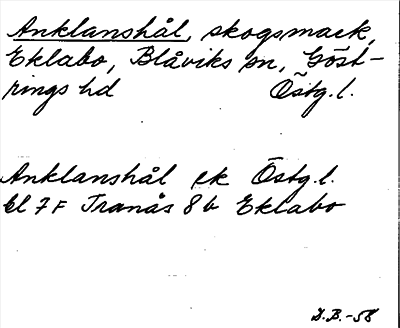 Anklanshål, skogsmack,
Eklabo, Blåviks sn, Göst-
rings hd Östg. l.
Anklanshål ek Östg. l.
bl 7F Tranås 8b Eklabo
D.B.-58